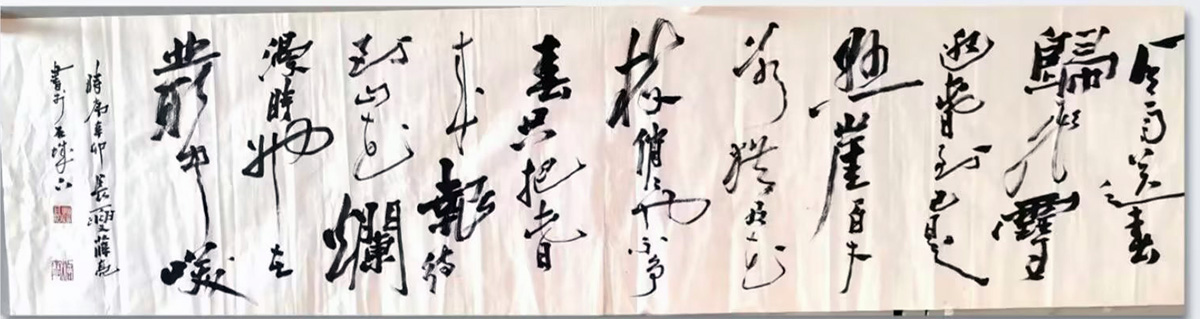 風雨送春
歸飛雪
迎春到已是
懸崖百丈
冰猶有花
枝俏俏也不争
春只把春
来報待
到山花爛
漫時她在
叢中笑
時辛卯長夏薛亮
書於石城